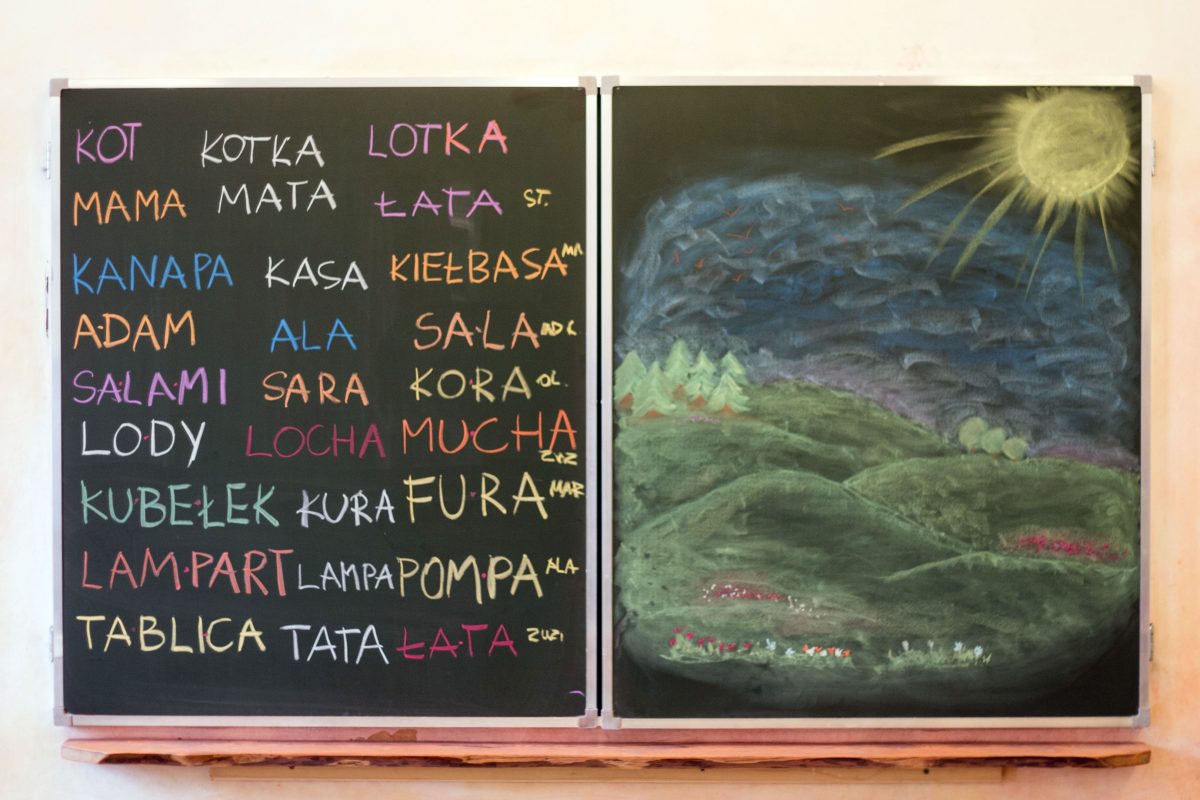 KOT KOTKA LOTKA
MAMA MATA ŁATA ST.
KANAPA KASA KIEŁBASA
A·DAM ALA SA·LA
SA·LA·MI SARA KO·RA OL.
LO·DY LOCHA MU·CHA
KU·BE·ŁEK KURA FU·RA MAR
LAM·PART LAMPA POM·PA ALA
TA·BLI·CA TATA ŁA·TA ZUZI